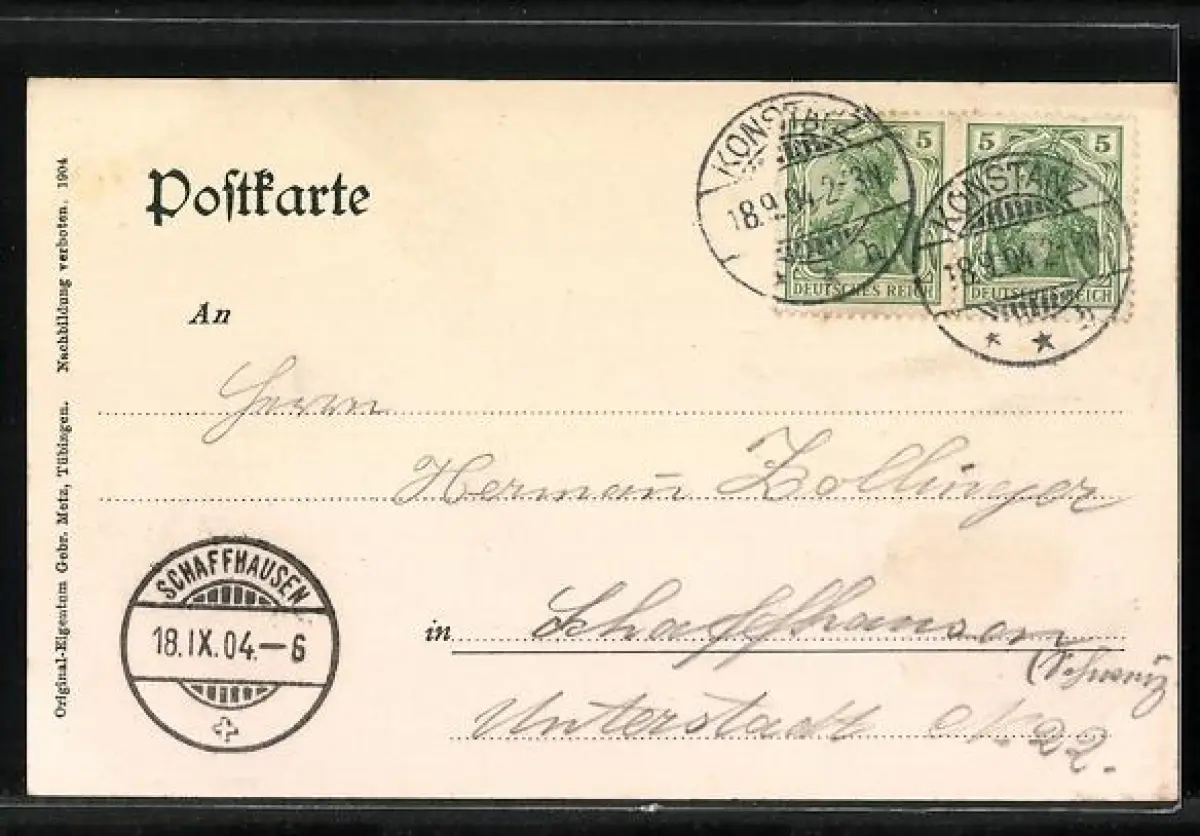 Postkarte
An
KONSTANZ
18.9.04.2-3N
b
5 5
DEUTSCHES REICH
KONSTANZ
18.9.04.2-3N
b
5 5
DEUTSCHES REICH
Herrn
Herman Zollinger
in Schaffhausen
(Schweiz
Unterstadt No 22.
SCHAFFHAUSEN
18.IX.04.–6
Original-Eigentum Gebr. Metz, Tübingen. Nachbildung verboten. 1904